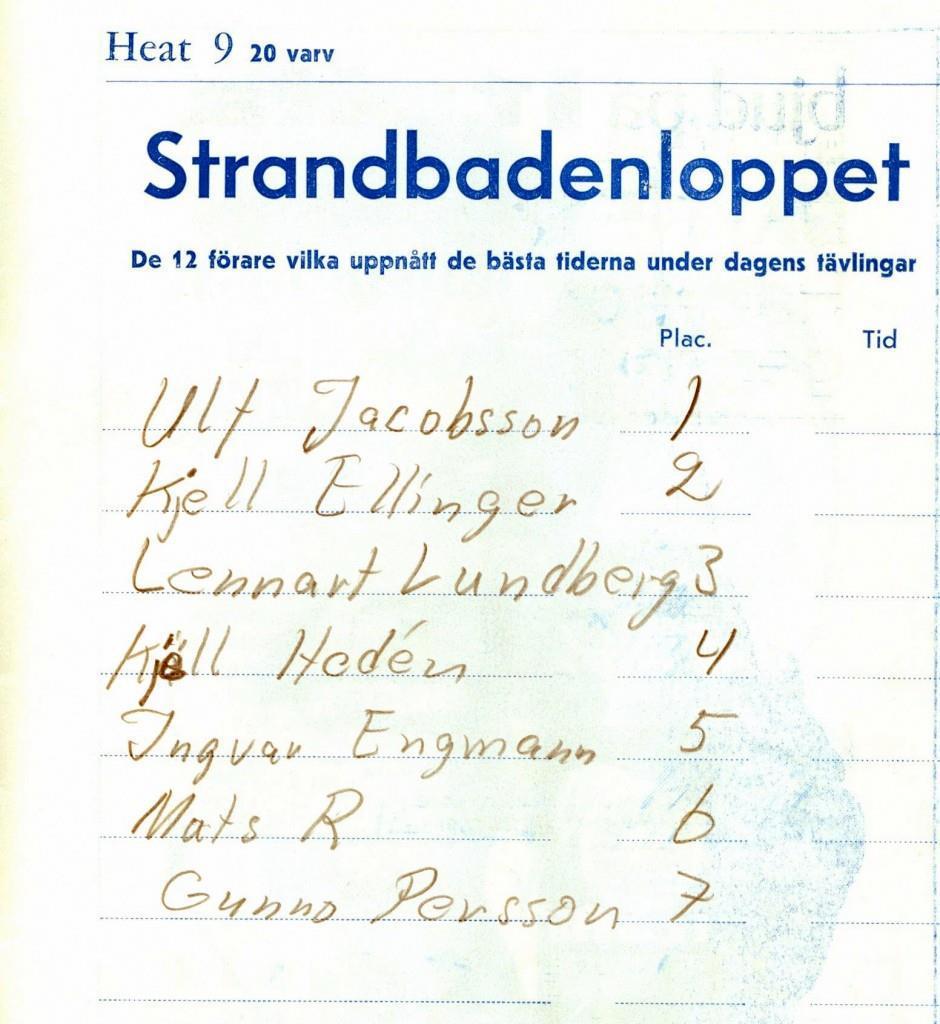 Heat 9 20 varv
Strandbadenloppet
De 12 förare vilka uppnått de bästa tiderna under dagens tävlingar
Plac. Tid
Ulf Jacobsson 1
Kjell Ellinger 2
Lennart Lundberg 3
Kjell Hedén 4
Ingvar Engmann 5
Mats R 6
Gunno Persson 7